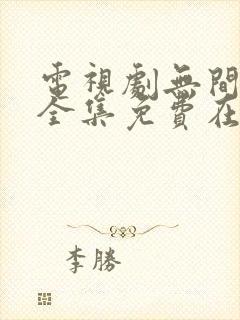 電視劇無間
全集免費在
李勝